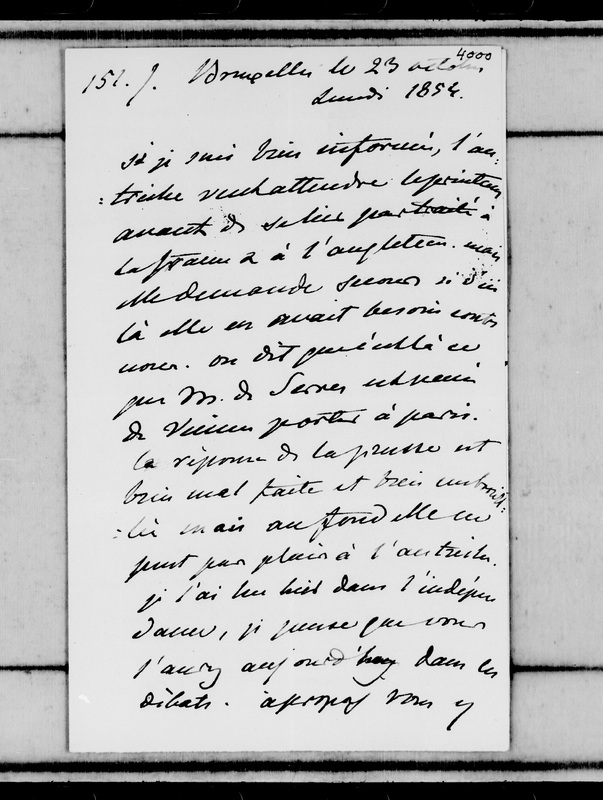 4000
151. J. Bruxelles le 23 octobre
Lundi 1854.
Si je suis bien informée, l'au=
=triche veut attendre le printems
avant de se lier par traité à
la france & à l'angleterre. mais
elle demande secours si d'ici
là elle en avait besoin contre
nous. on dit que c'est là ce
que M. de Serres est venu
de Vienne porter à paris.
la réponse de la prusse est
bien mal faite et bien embrouil=
=lée mais au fond elle ne
peut pas plaire à l'autriche.
je l'ai lue hier dans l'indépen
dance, je pense que vous
l'aurez aujourd'huy dans les
débats. àpropos vous y